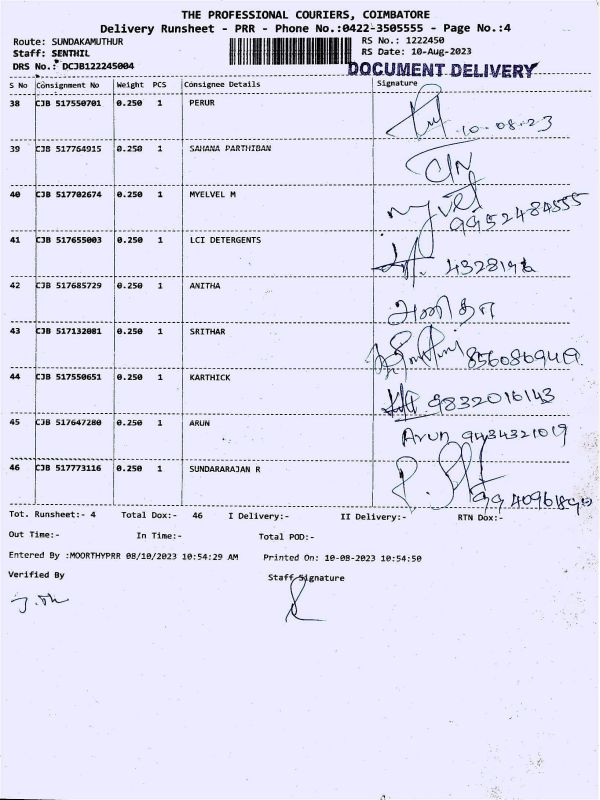 THE PROFESSIONAL COURIERS, COIMBATORE
Delivery Runsheet - PRR - Phone No.:0422-3505555 - Page No.:4
Route: SUNDAKAMUTHUR RS No.: 1222450
Staff: SENTHIL RS Date: 10-Aug-2023
DRS No.: DCJB122245004 DOCUMENT DELIVERY
S No Consignment No Weight PCS Consignee Details Signature
38 CJB 517550701 0.250 1 PERUR
10-08-23
39 CJB 517764915 0.250 1 SAHANA PARTHIBAN
40 CJB 517702674 0.250 1 MYELVEL M
9952484555
41 CJB 517655003 0.250 1 LCI DETERGENTS
42 CJB 517685729 0.250 1 ANITHA
அனிதா
43 CJB 517132081 0.250 1 SRITHAR
8560869419
44 CJB 517550651 0.250 1 KARTHICK
9832016143
45 CJB 517647280 0.250 1 ARUN
Arun 9434321019
46 CJB 517773116 0.250 1 SUNDARARAJAN R
Tot. Runsheet:- 4 Total Dox:- 46 I Delivery:- II Delivery:- RTN Dox:-
Out Time:- In Time:- Total POD:-
Entered By :MOORTHYPRR 08/10/2023 10:54:29 AM Printed On: 10-08-2023 10:54:50
Verified By Staff Signature